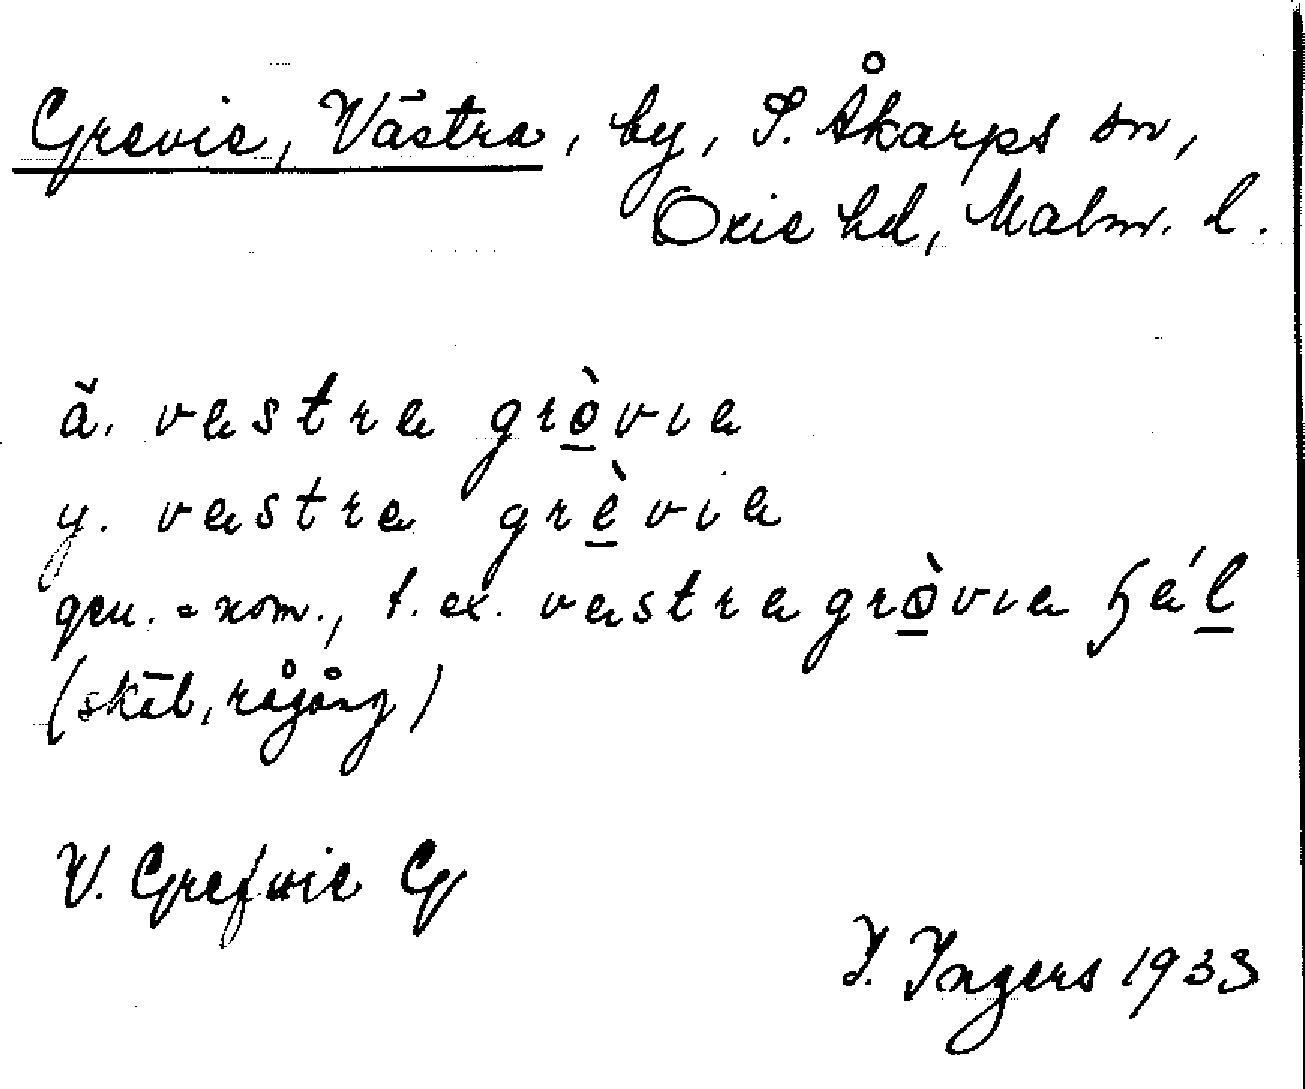 Grevie, Västra, by, S. Åkarps sn,
Oxie hd, Malm. l.
ä. vestra grø̀via
y. vestra grèvia
gen. = nom., t. ex. vestra grø̀via
(skäl, rågång)
V. Grefvie G
I. Ingers 1933